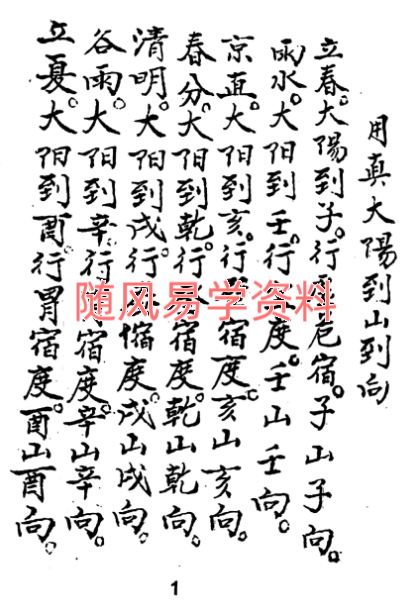 用真大陽到山到向
立春。大陽到子。行危宿。子山子向。
雨水。大阳到壬。行度。壬山壬向。
京直。大阳到亥。行宿度。亥山亥向。
春分。大阳到乾。行宿度。乾山乾向。
清明。大阳到戌。行度。戌山戌向。
谷雨。大阳到辛行宿度。辛山辛向。
立夏。大阳到酉行胃宿度。酉山酉向。
随风易学资料
1